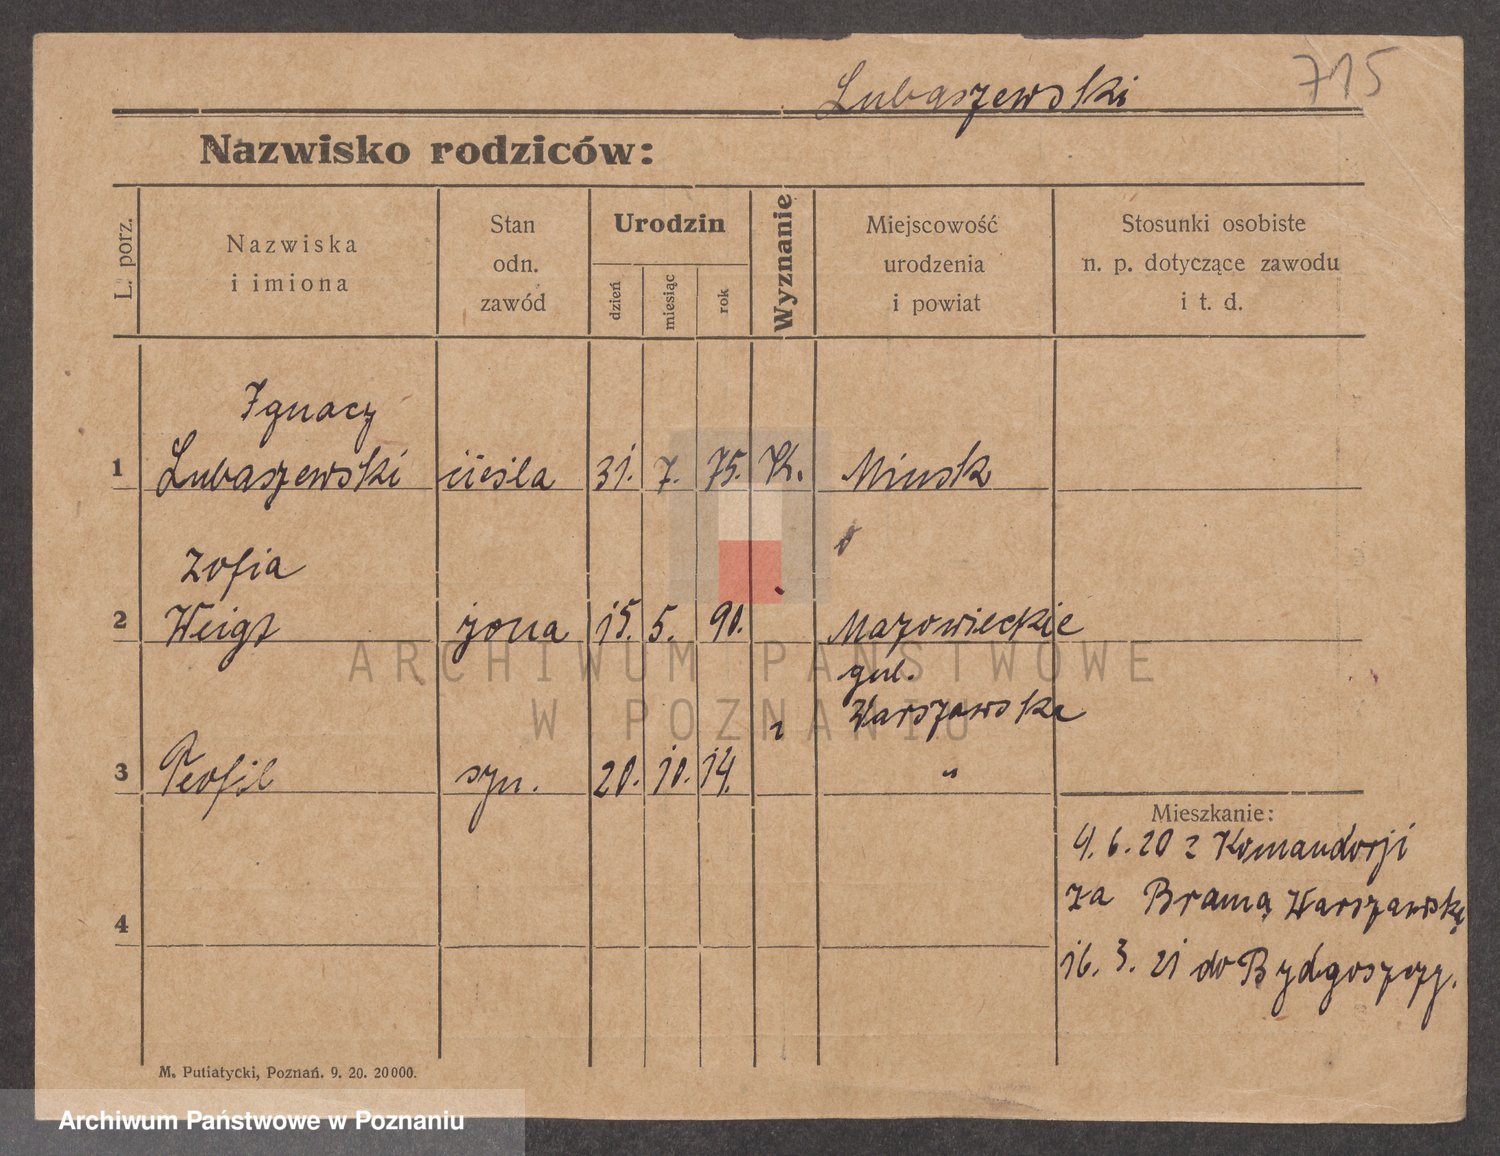 715
Lubaszewski
Nazwisko rodziców:
L. porz.
Nazwiska
i imiona
Stan
odn.
zawód
Urodzin
dzień
miesiąc
rok
Wyznanie
Miejscowość
urodzenia
i powiat
Stosunki osobiste
n. p. dotyczące zawodu
i t. d.
Ignacy
1 Lubaszewski cieśla 31. 7. 75. K. Minsk
Zofia
2 Weigt żona 15. 5. 90. Mazowieckie
gub.
Warszawska
3 Teofil syn. 20. 10. 14. "
4
Mieszkanie:
4. 6. 20 z Komandorji
za Bramą Warszawską
16. 3. 21 do Bydgoszczy.
M. Putiatycki, Poznań. 9. 20. 20000.
ARCHIWUM PAŃSTWOWE
W POZNANIU
Archiwum Państwowe w Poznaniu